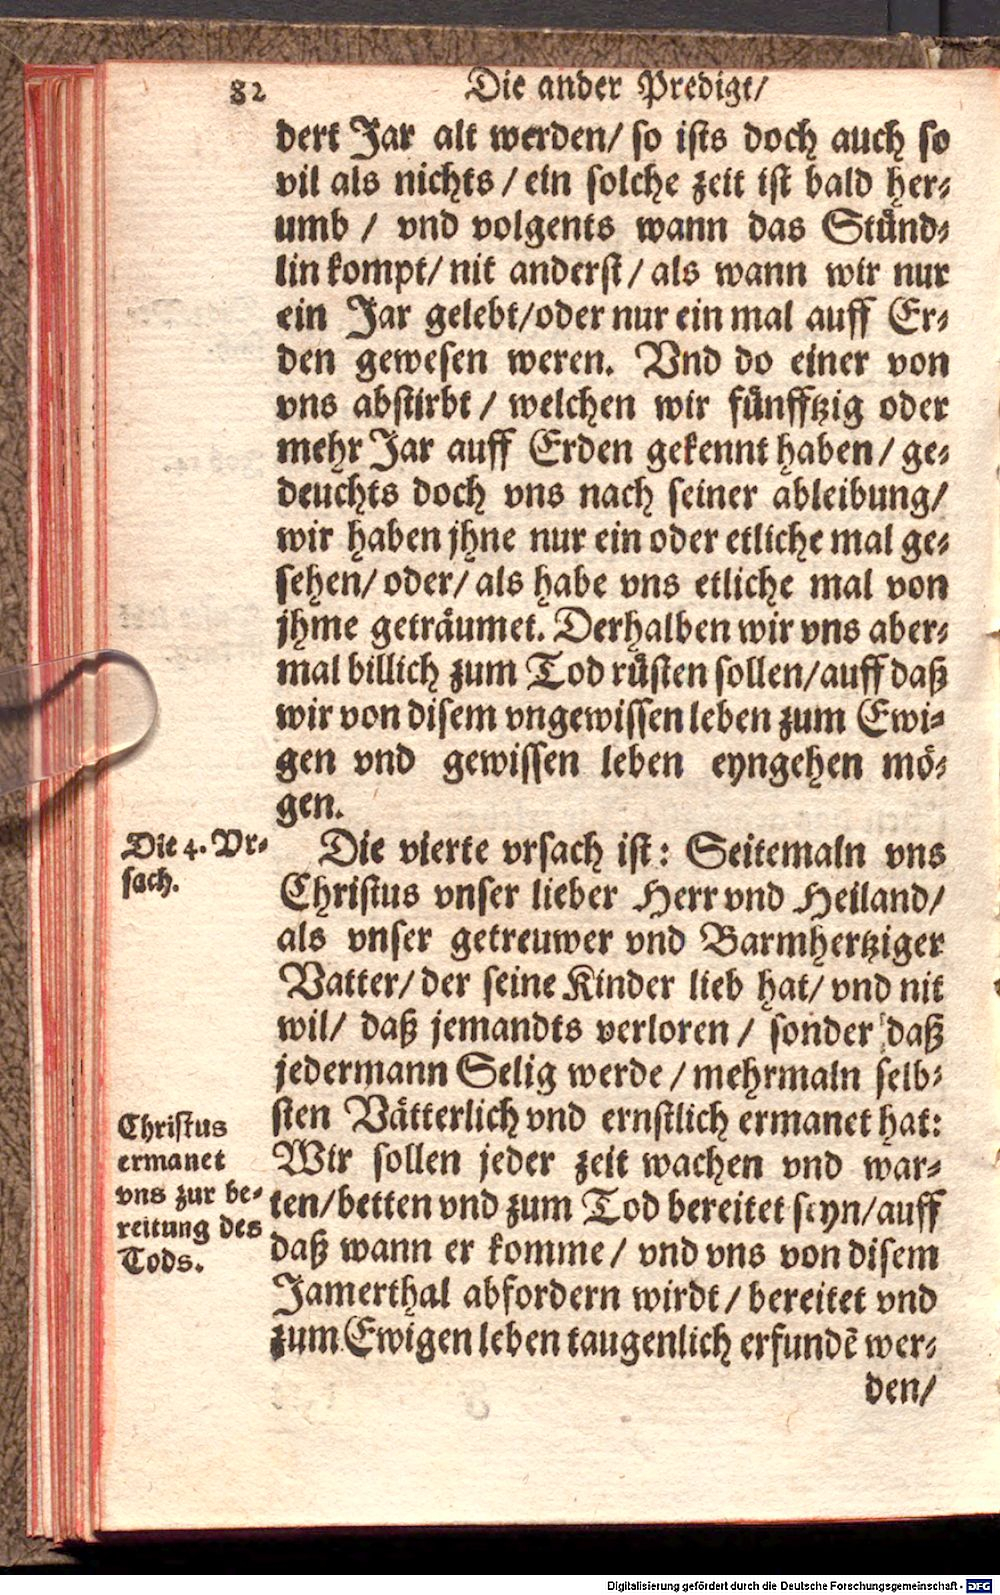 82 Die ander Predigt/
dert Jar alt werden/ so ists doch auch so
vil als nichts / ein solche zeit ist bald her⸗
umb / vnd volgents wann das Stuͤnd⸗
lin kompt/ nit anderst/ als wann wir nur
ein Jar gelebt/oder nur ein mal auff Er⸗
den gewesen weren. Vnd do einer von
vns abstirbt / welchen wir fuͤnfftzig oder
mehr Jar auff Erden gekennt haben/ ge⸗
deuchts doch vns nach seiner ableibung/
wir haben jhne nur ein oder etliche mal ge⸗
sehen/ oder/ als habe vns etliche mal von
jhme getraͤumet. Derhalben wir vns aber⸗
mal billich zum Tod ruͤsten sollen/auff daß
wir von disem vngewissen leben zum Ewi⸗
gen vnd gewissen leben eyngehen moͤ⸗
gen.
Die 4. Vr⸗
sach.
Die vierte vrsach ist: Seitemaln vns
Christus vnser lieber Herr vnd Heiland/
als vnser getreuwer vnd Barmhertziger
Vatter/ der seine Kinder lieb hat/ vnd nit
wil/ daß jemandts verloren / sonder daß
jedermann Selig werde / mehrmaln selb⸗
sten Vaͤtterlich vnd ernstlich ermanet hat:
Christus
ermanet
vns zur be⸗
reitung des
Tods.
Wir sollen jeder zeit wachen vnd war⸗
ten/betten vnd zum Tod bereitet seyn/auff
daß wann er komme / vnd vns von disem
Jamerthal abfordern wirdt / bereitet vnd
zum Ewigen leben taugenlich erfundẽ wer⸗
den/
Digitalisierung gefördert durch die Deutsche Forschungsgemeinschaft - DFG